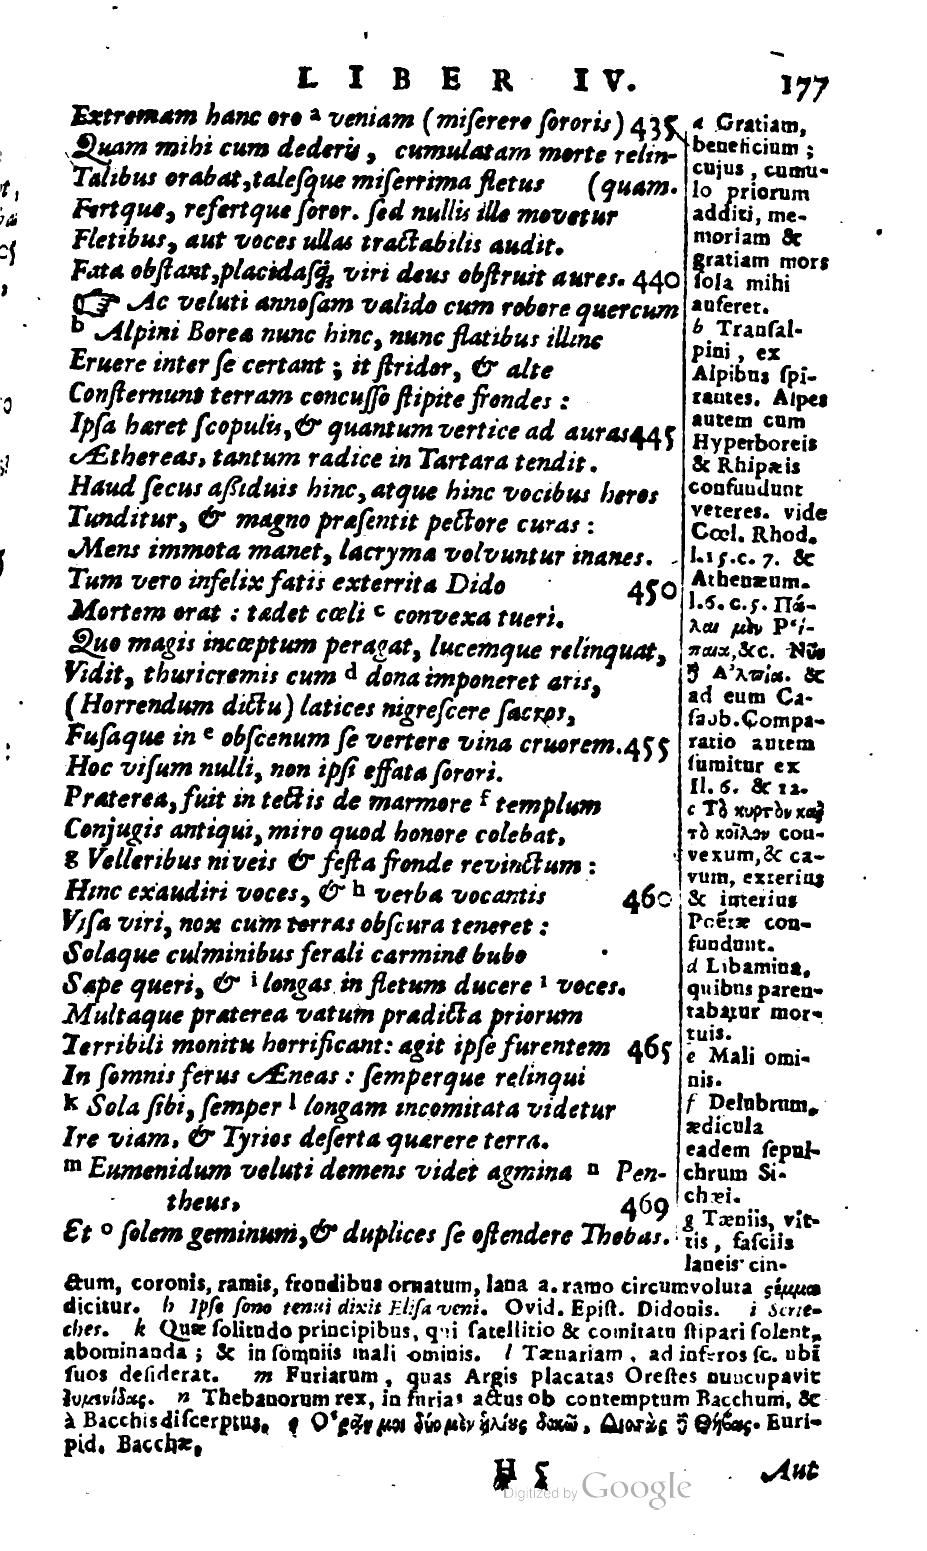 LIBER IV. 177
Extremam hanc oro a veniam (miſerere ſororis) 435
Quam mihi cum dederis, cumulatam morte relin-
Talibus orabat, taleſque miſerrima fletus (quam.
Fertque, refertque ſoror. ſed nullis ille movetur
Fletibus, aut voces ullas tractabilis audit.
Fata obſtant, placidaſq; viri deus obſtruit aures. 440
☞ Ac veluti annoſam valido cum robore quercum
b Alpini Boreæ nunc hinc, nunc flatibus illinc
Eruere inter ſe certant; it ſtridor, & altè
Conſternunt terram concuſſo ſtipite frondes:
Ipſa hæret ſcopulis, & quantum vertice ad auras 445
Æthereas, tantum radice in Tartara tendit.
Haud ſecus aßiduis hinc, atque hinc vocibus heros
Tunditur, & magno præſentit pectore curas:
Mens immota manet, lacrymæ volvuntur inanes.
Tum vero infelix fatis exterrita Dido 450
Mortem orat: tædet cœli c convexa tueri.
Quo magis incœptum peragat, lucemque relinquat,
Vidit, thuricremis cum d dona imponeret aris,
(Horrendum dictu) latices nigreſcere ſacros,
Fuſaque in e obſcenum ſe vertere vina cruorem. 455
Hoc viſum nulli, non ipſi effata ſorori.
Præterea, fuit in tectis de marmore f templum
Conjugis antiqui, miro quod honore colebat,
g Velleribus niveis & feſta fronde revinctum:
Hinc exaudiri voces, & h verba vocantis 460
Viſa viri, nox cum terras obſcura teneret:
Solaque culminibus ferali carmine bubo
Sæpe queri, & i longas in fletum ducere i voces.
Multaque præterea vatum prædicta priorum
Terribili monitu horrificant: agit ipſe furentem 465
In ſomnis ferus Æneas: ſemperque relinqui
k Sola ſibi, ſemper l longam incomitata videtur
Ire viam, & Tyrios deſerta quærere terra.
m Eumenidum veluti demens videt agmina n Pen-
theus, 469
Et o ſolem geminum, & duplices ſe oſtendere Thebas.
a Gratiam,
beneficium;
cujus, cumu-
lo priorum
additi, me-
moriam &
gratiam mors
ſola mihi
auferet.
b Tranſal-
pini, ex
Alpibus ſpi-
rantes. Alpes
autem cum
Hyperboreis
& Rhipæis
confundunt
veteres. vide
Cœl. Rhod.
l.15.c. 7. &
Athenæum.
l.6. c.5. Πά-
λαι μὲν Ῥί-
παια, &c. Νῦν
δ Ἄλπια. &
ad eum Ca-
ſaub. Compa-
ratio autem
ſumitur ex
Il. 6. & 12.
c Τὸ κυρτὸν καὶ
τὸ κοῖλον con-
vexum, & ca-
vum, exterius
& interius
Poëtæ con-
fundunt.
d Libamina,
quibus paren-
tabatur mor-
tuis.
e Mali omi-
nis.
f Delubrum,
ædicula
eadem ſepul-
chrum Si-
chæi.
g Tæniis, vit-
tis, faſciis
laneis cin-
ctum, coronis, ramis, frondibus ornatum, lana a ramo circumvoluta ςέμμα
dicitur. h Ipſe ſono tenui dixit Eliſa veni. Ovid. Epiſt. Didonis. i Strie-
ches. k Quæ ſolitudo principibus, qui ſatellitio & comitatu ſtipari ſolent,
abominanda; & in ſomniis mali ominis. l Tænariam, ad inferos ſc. ubi
ſuos deſiderat. m Furiarum, quas Argis placatas Oreſtes nuncupavit
Ευμενίδας. n Thebanorum rex, in furias actus ob contemptum Bacchum, &
à Bacchis diſcerptus. o Ὁρᾷν μοι δύο μὲν ἡλίους δοκῶ, Δισσὰς δ Θήβας. Euri-
pid. Bacchæ,
H 5 Aut
Digitized by Google